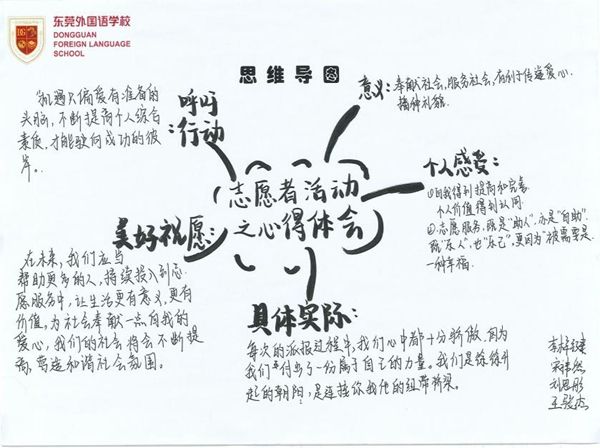 东莞外国语学校
DONGGUAN
FOREIGN LANGUAGE
SCHOOL
思维导图
呼吁
行动:
"机遇只偏爱有准备的
头脑,不断提高个人综合
素质,才能驶向成功的彼
岸。
意义:奉献社会,服务社会,有利于传递爱心,
播种礼貌.
志愿者活动
之心得体会
个人感受:
①自我得到提高和完善.
个人价值得到认同.
②志愿服务,既是"助人",亦是"自助".
既"乐人",也"乐己",更因为"被需要是
一种幸福.
美好祝愿:
在未来,我们应当
帮助更多的人,持续投入到志
愿服务中,让生活更有意义,更有
价值,为社会奉献一点自我的
爱心,我们的社会将会不断提
高,营造和谐社会氛围。
具体实际:
每次的派报过程中,我们心中都十分骄傲,因为
我们付出了一份属于自己的力量。我们是徐徐升
起的朝阳,是连接你我他的纽带桥梁。
刘思彤
王骏杰